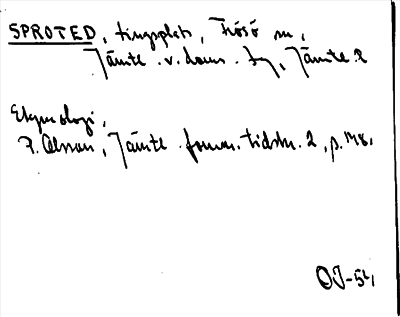 SPROTED, tingsplats, Frösö sn,
Jämtl. v. doms. tg, Jämtl. l
Etymologi,
P. Olsson, Jämtl. fornm. tidskr. 2, p. 148.
OJ-54,